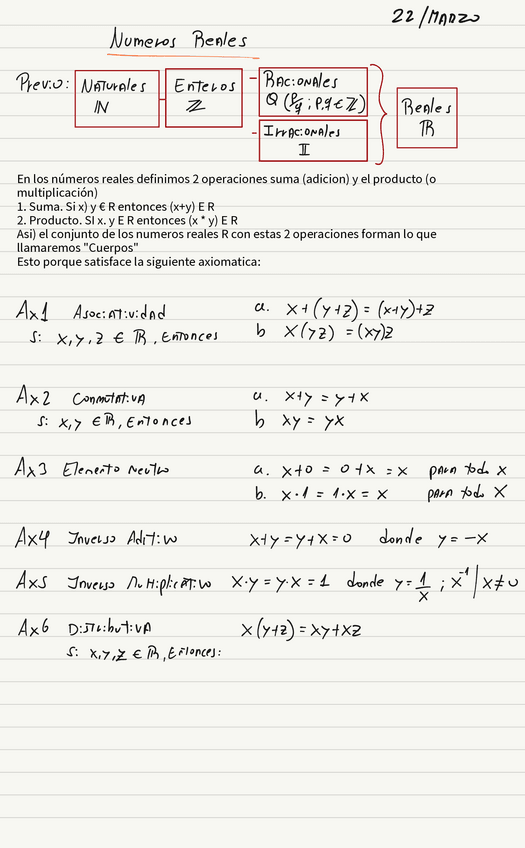 22/Marzo
Numeros Reales
Previo: Naturales ℕ Enteros ℤ Racionales Q (p/q ; p,q ∈ ℤ) Irracionales 𝕀 Reales ℝ
En los números reales definimos 2 operaciones suma (adicion) y el producto (o
multiplicación)
1. Suma. Si x) y € R entonces (x+y) E R
2. Producto. SI x. y E R entonces (x * y) E R
Asi) el conjunto de los numeros reales R con estas 2 operaciones forman lo que
llamaremos "Cuerpos"
Esto porque satisface la siguiente axiomatica:
Ax1 Asociatividad a. x+(y+z) = (x+y)+z
Si x,y,z ∈ ℝ, Entonces b x(yz) = (xy)z
Ax2 Conmutativa a. x+y = y+x
Si x,y ∈ ℝ, Entonces b xy = yx
Ax3 Elemento Neutro a. x+0 = 0+x = x para todo x
b. x·1 = 1·x = x para todo x
Ax4 Inverso Aditivo x+y = y+x = 0 donde y = -x
Ax5 Inverso Multiplicativo x·y = y·x = 1 donde y = 1/x ; x⁻¹ | x≠0
Ax6 Distributiva x(y+z) = xy+xz
Si x,y,z ∈ ℝ, Entonces: